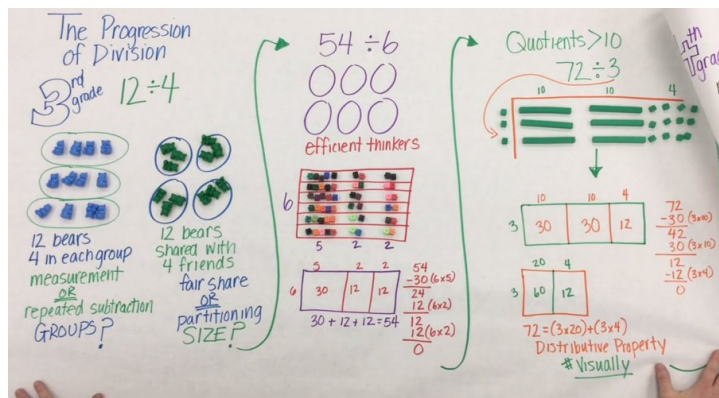 The Progression
of Division
3rd
grade
12÷4
12 bears
4 in each group
measurement
OR
repeated subtraction
GROUPS?
12 bears
shared with
4 friends
fair share
OR
partitioning
SIZE?
54 ÷6
efficient thinkers
6
5 2 2
5 2 2
6 30 12 12
30 + 12 + 12 = 54
54
-30 (6x5)
24
12 (6x2)
12
12 (6x2)
0
Quotients >10
72÷3
10 10 4
10 10 4
3 30 30 12
72
-30 (3x10)
42
30 (3x10)
12
-12 (3x4)
0
20 4
3 60 12
72=(3x20)+(3x4)
Distributive Property
# Visually